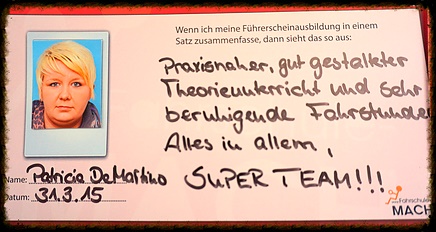 Wenn ich meine Führerscheinausbildung in einem
Satz zusammenfasse, dann sieht das so aus:
Praxisnaher, gut gestalteter
Theorieunterricht und sehr
beruhigende Fahrstunden
Alles in allem,
SUPER TEAM!!!
Name: Patricia DeMartino
Datum: 31.3.15
Fahrschule
MACH